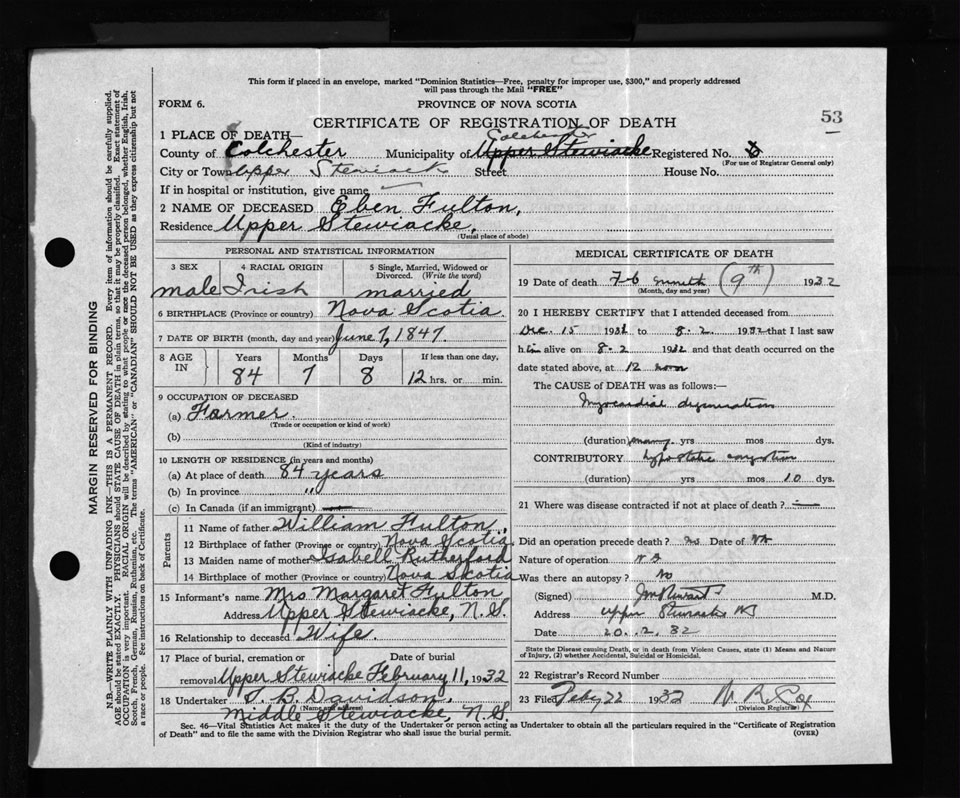 This form if placed in an envelope, marked "Dominion Statistics—Free, penalty for improper use, $300," and properly addressed
will pass through the Mail "FREE"
FORM 6.
PROVINCE OF NOVA SCOTIA
53
CERTIFICATE OF REGISTRATION OF DEATH
1 PLACE OF DEATH—
Colchester
County of Colchester Municipality of Upper Stewiacke Registered No.
(For use of Registrar General only)
City or Town Upper Stewiack Street House No.
If in hospital or institution, give name
2 NAME OF DECEASED Eben Fulton,
Residence Upper Stewiacke,
(Usual place of abode)
PERSONAL AND STATISTICAL INFORMATION
3 SEX 4 RACIAL ORIGIN 5 Single, Married, Widowed or
Divorced. (Write the word)
male Irish married
6 BIRTHPLACE (Province or country) Nova Scotia
7 DATE OF BIRTH (month, day and year) June 1, 1847.
8 AGE IN Years Months Days If less than one day,
84 7 8 12 hrs. or min.
9 OCCUPATION OF DECEASED
(a) Farmer.
(Trade or occupation or kind of work)
(b)
(Kind of industry)
10 LENGTH OF RESIDENCE (in years and months)
(a) At place of death 84 years
(b) In province "
(c) In Canada (if an immigrant)
Parents
11 Name of father William Fulton,
12 Birthplace of father (Province or country) Nova Scotia
13 Maiden name of mother Isabell Rutherford
14 Birthplace of mother (Province or country) Nova Scotia
15 Informant's name Mrs Margaret Fulton
Address Upper Stewiacke, N.S.
16 Relationship to deceased Wife.
17 Place of burial, cremation or Date of burial
removal Upper Stewiacke February 11, 1932
18 Undertaker T. B. Davidson,
(Name and address)
Middle Stewiacke, N.S.
MEDICAL CERTIFICATE OF DEATH
19 Date of death Feb (9th) 1932
(Month, day and year)
20 I HEREBY CERTIFY that I attended deceased from
Dec. 15 1931 to 8.2 1932 that I last saw
him alive on 8.2 1932 and that death occurred on the
date stated above, at 12 noon
The CAUSE of DEATH was as follows:—
Myocardial degeneration
(duration) many yrs mos dys.
CONTRIBUTORY hypostatic congestion
(duration) yrs mos 10 dys.
21 Where was disease contracted if not at place of death?
Did an operation precede death? No Date of
Nature of operation
Was there an autopsy? No
(Signed) M.D.
Address Upper Stewiacke NS
Date 20.2.32
State the Disease causing Death, or in death from Violent Causes, state (1) Means and Nature
of Injury, (2) whether Accidental, Suicidal or Homicidal.
22 Registrar's Record Number
23 Filed Feby 22 1932 Cox
(Division Registrar)
Sec. 46—Vital Statistics Act makes it the duty of the Undertaker or person acting as Undertaker to obtain all the particulars required in the "Certificate of Registration
of Death" and to file the same with the Division Registrar who shall issue the burial permit.
(OVER)
MARGIN RESERVED FOR BINDING
N.B.—WRITE PLAINLY WITH UNFADING INK—THIS IS A PERMANENT RECORD. Every item of information should be carefully supplied.
AGE should be stated EXACTLY. PHYSICIANS should STATE CAUSE OF DEATH in plain terms, so that it may be properly classified. Exact statement of
OCCUPATION is very important. RACIAL ORIGIN will be described by stating to what people or race the deceased person belonged, whether English, Irish,
Scotch, French, German, Russian, Ruthenian, etc. The terms "AMERICAN" or "CANADIAN" SHOULD NOT BE USED as they express citizenship but not
a race or people. See instructions on back of Certificate.